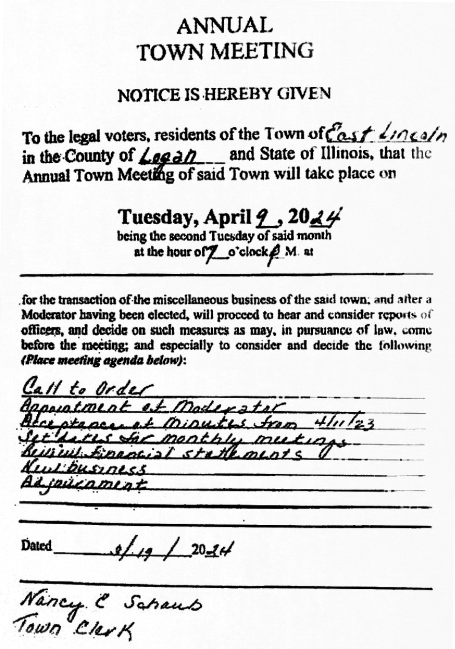 ANNUAL
TOWN MEETING
NOTICE IS HEREBY GIVEN
To the legal voters, residents of the Town of East Lincoln
in the County of Logan and State of Illinois, that the
Annual Town Meeting of said Town will take place on
Tuesday, April 9, 2024
being the second Tuesday of said month
at the hour of 7 o'clock P M. at
for the transaction of the miscellaneous business of the said town; and after a
Moderator having been elected, will proceed to hear and consider reports of
officers, and decide on such measures as may, in pursuance of law, come
before the meeting; and especially to consider and decide the following
(Place meeting agenda below):
Call to Order
Appointment of Moderator
Acceptance of Minutes from 4/11/23
Set dates for monthly meetings
Review financial statements
New business
Adjournment
Dated /19/ 2024
Nancy E Schaub
Town Clerk